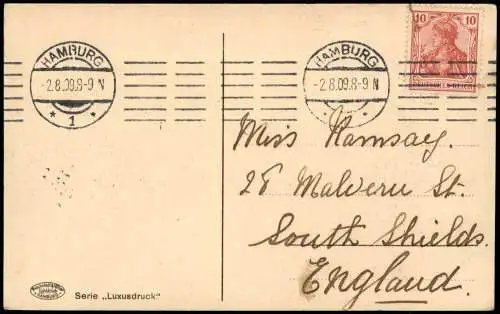 10 10
DEUTSCHES REICH
HAMBURG
-2.8.09.8-9 N
* 1 *
HAMBURG
-2.8.09.8-9 N
Miss Ramsay.
Malvern St.
South Shields.
England.
HAMBURG
Serie „Luxusdruck"